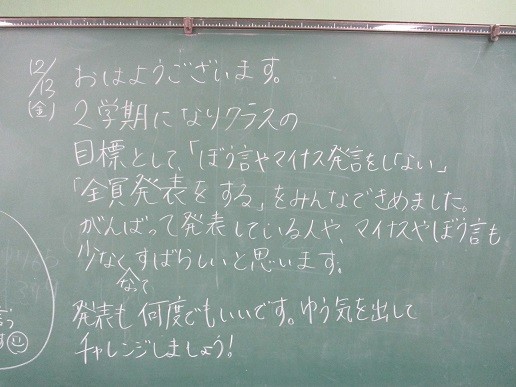 12/13(金)
おはようございます。
2学期になりクラスの
目標として、「ぼう言やマイナス発言をしない」
「全員発表をする」をみんなできめました。
がんばって発表している人や、マイナスやぼう言も
少なくなってすばらしいと思います。
発表も何度でもいいです。ゆう気を出して
チャレンジしましょう!